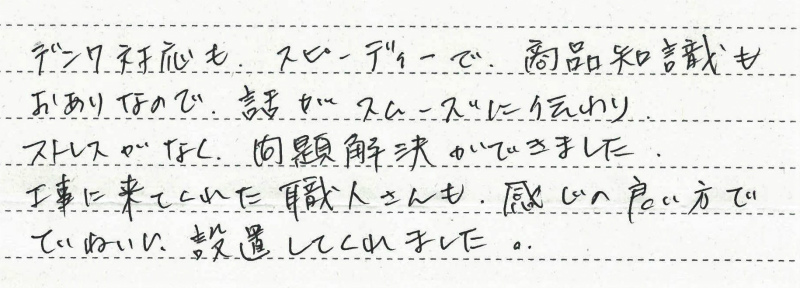 デンワ対応も、スピーディーで、商品知識も
おありなので、話がスムーズに伝わり、
ストレスがなく、問題解決ができました。
工事に来てくれた職人さんも、感じの良い方で
ていねいに、設置してくれました。